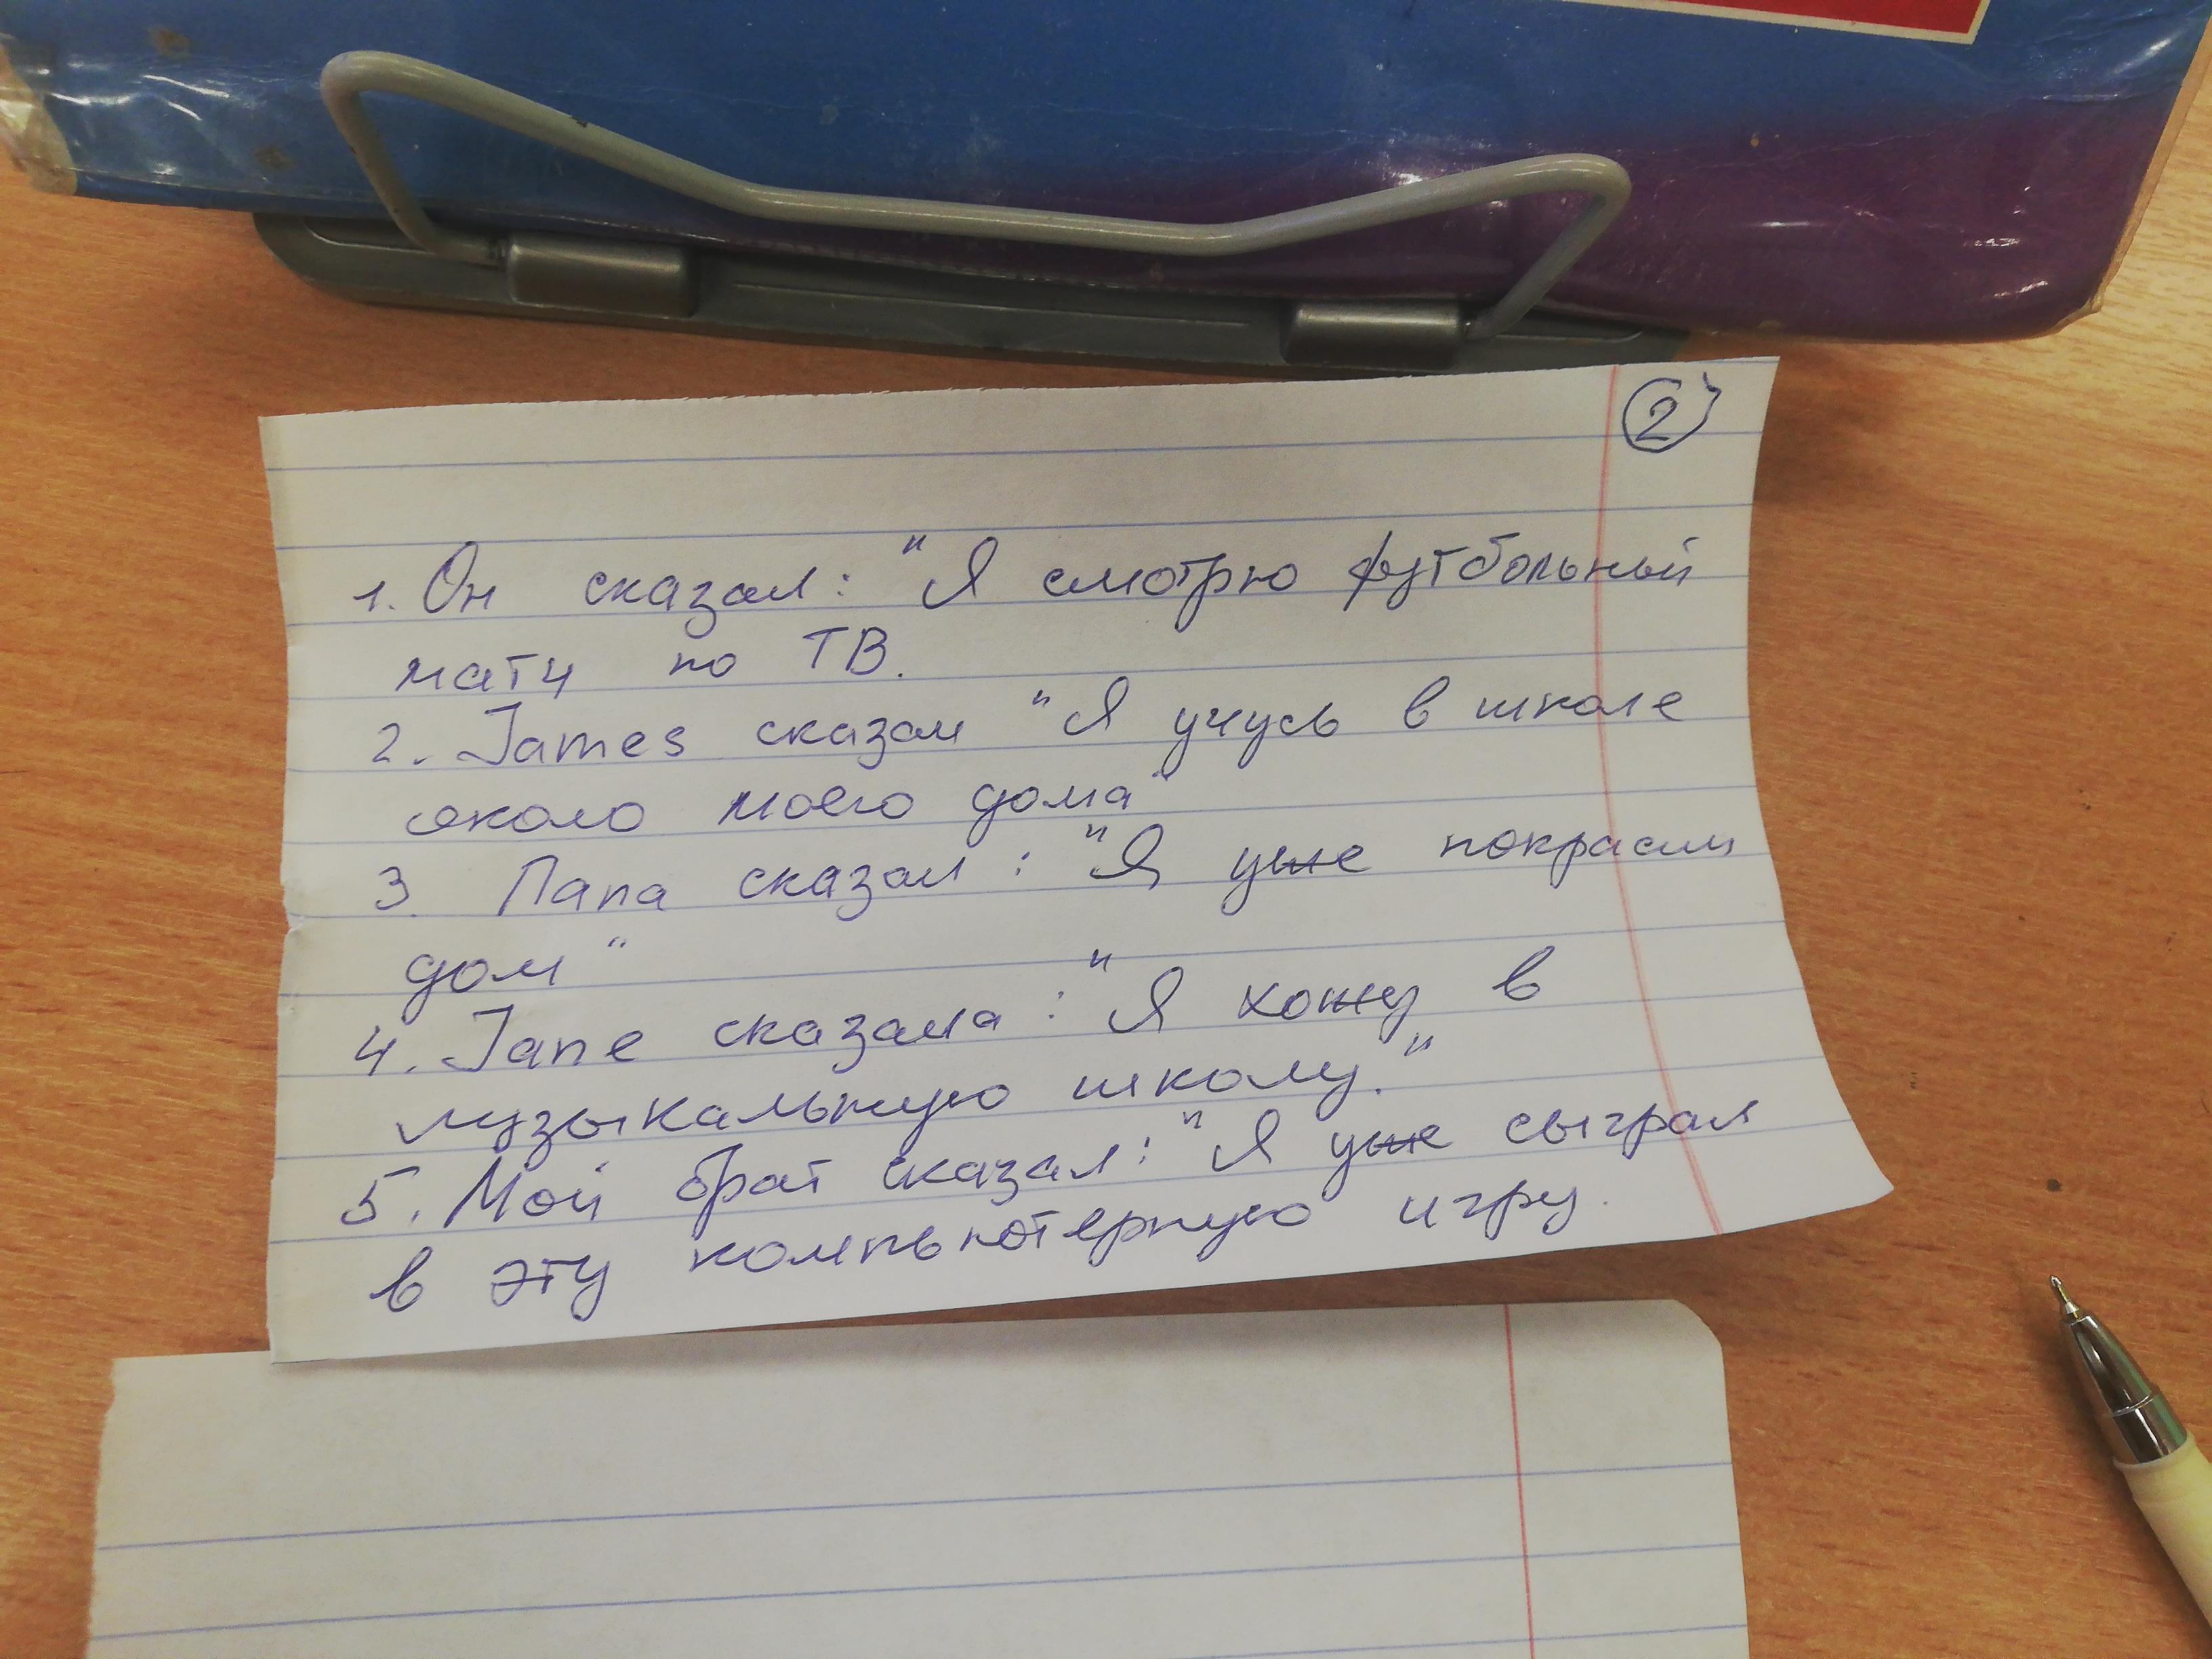 2
1. Он сказал: "Я смотрю футбольный
матч по ТВ.
2. James сказал "Я учусь в школе
около моего дома"
3. Папа сказал: "Я уже покрасил
дом"
4. Jane сказала: "Я хожу в
музыкальную школу."
5. Мой брат сказал: "Я уже сыграл
в эту компьютерную игру.